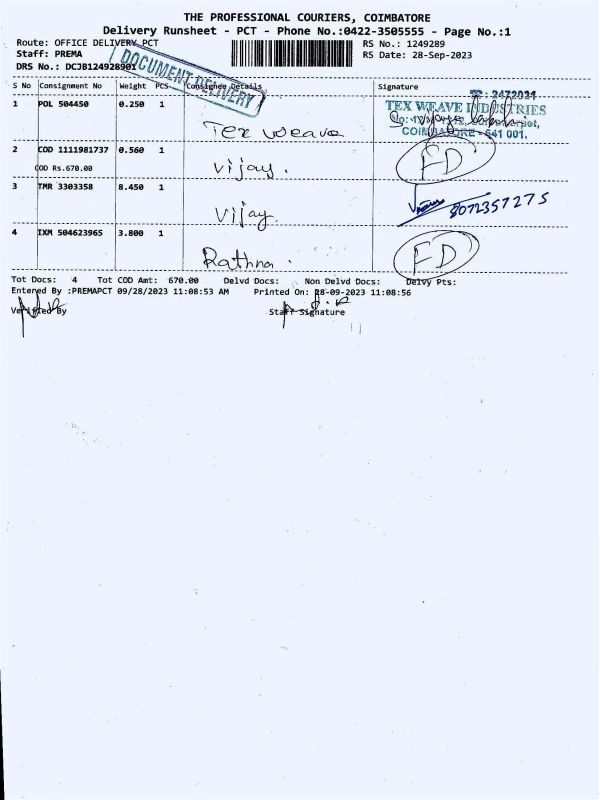 THE PROFESSIONAL COURIERS, COIMBATORE
Delivery Runsheet - PCT - Phone No.:0422-3505555 - Page No.:1
Route: OFFICE DELIVERY PCT
RS No.: 1249289
Staff: PREMA
RS Date: 28-Sep-2023
DRS No.: DCJB124928901
DOCUMENT DELIVERY
S No Consignment No Weight PCS Consignee Details Signature
☎ : 2472034
1 POL 504450 0.250 1
TEX WEAVE INDUSTRIES
COIMBATORE - 641 001.
Tex weave
2 COD 1111981737 0.560 1
COD Rs.670.00
Vijay.
FD
3 TMR 3303358 8.450 1
Vijay
8072357275
4 IXM 504623965 3.800 1
Rathna.
FD
Tot Docs: 4 Tot COD Amt: 670.00 Delvd Docs: Non Delvd Docs: Delvy Pts:
Entered By :PREMAPCT 09/28/2023 11:08:53 AM Printed On: 28-09-2023 11:08:56
Verified By Staff Signature